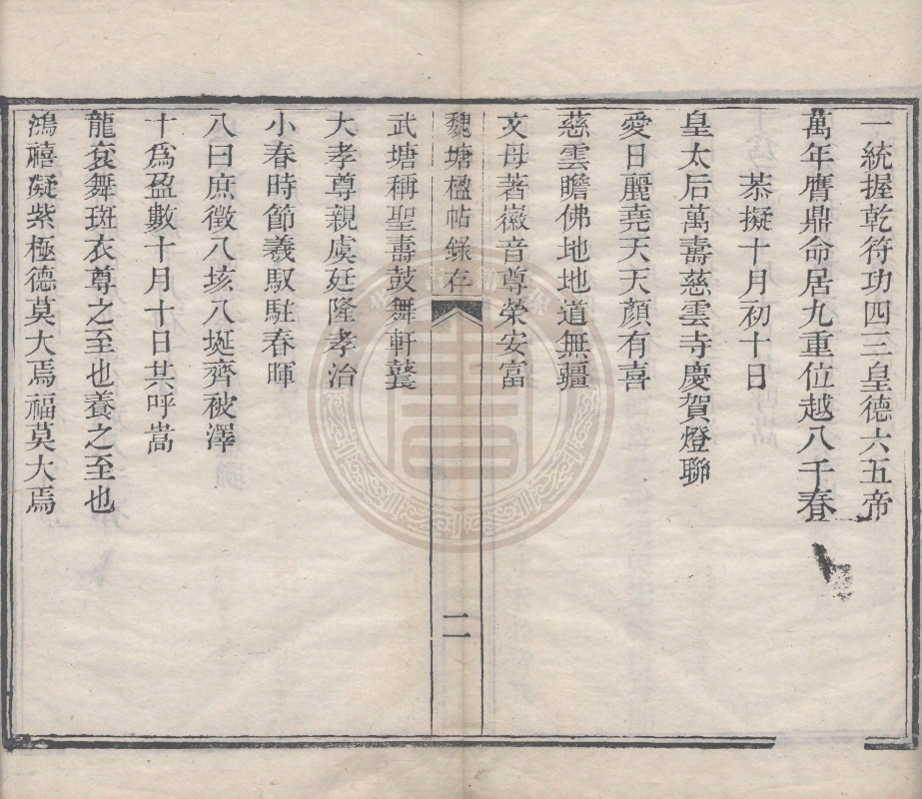 一統握乾符功四三皇德六五帝
萬年膺鼎命居九重位越八千春
恭擬十月初十日
皇太后萬壽慈雲寺慶賀燈聯
愛日麗堯天天顏有喜
慈雲瞻佛地地道無疆
文母著徽音尊榮安富
魏塘楹帖錄存
二
武塘稱聖壽鼓舞軒鼚
大孝尊親虞廷隆孝治
小春時節羲馭駐春暉
八曰庶徵八垓八埏齊被澤
十爲盈數十月十日共呼嵩
龍袞舞斑衣尊之至也養之至也
鴻禧凝紫極德莫大焉福莫大焉